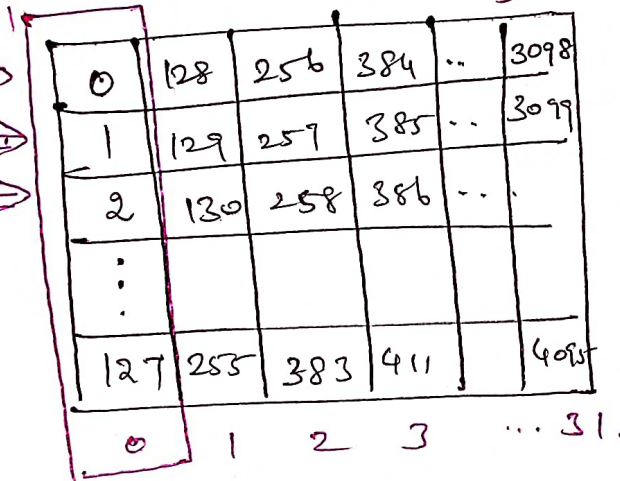 0 128 256 384 .. 3098
1 129 257 385 .. 3099
2 130 258 386 ...
⋮
127 255 383 411 4095
0 1 2 3 ... 31.